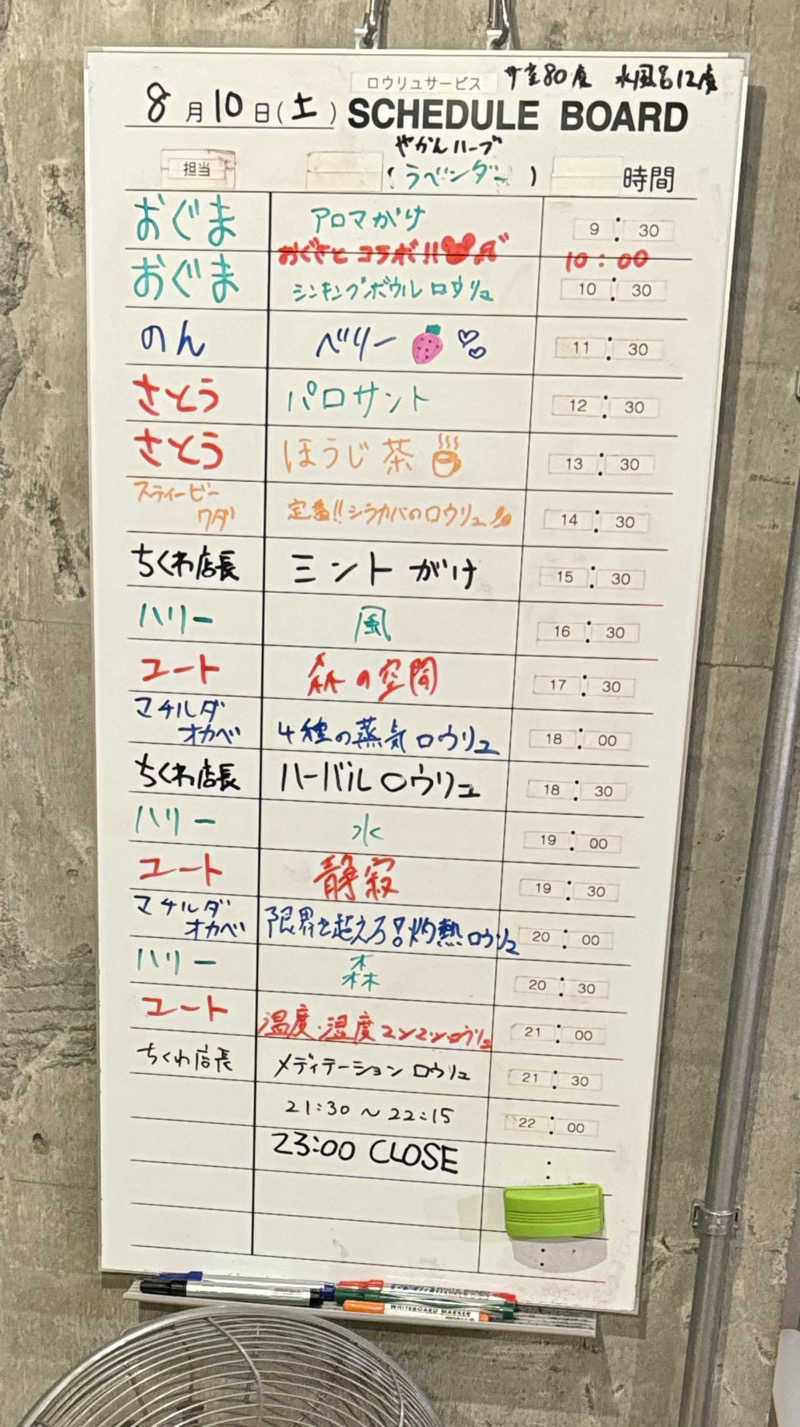 ロウリュサービス サ室80度 水風呂12度
8月10日(土) SCHEDULE BOARD
やかんハーブ
担当 (ラベンダー) 時間
おぐま アロマがけ 9:30
おぐさとコラボ!! 10:00
おぐま シンキングボウルロウリュ 10:30
のん ベリー 11:30
さとう パロサント 12:30
さとう ほうじ茶 13:30
スティービー
ワダ 定番!!シラカバのロウリュ 14:30
ちくわ店長 ミントがけ 15:30
ハリー 風 16:30
ユート 森の空間 17:30
マチルダ
オカベ 4種の蒸気ロウリュ 18:00
ちくわ店長 ハーバルロウリュ 18:30
ハリー 水 19:00
ユート 静寂 19:30
マチルダ
オカベ 限界を超えろ!灼熱ロウリュ 20:00
ハリー 森 20:30
ユート 温度・湿度マシマシロウリュ 21:00
ちくわ店長 メディテーションロウリュ 21:30
21:30〜22:15 22:00
23:00 CLOSE :
WHITEBOARD MARKER